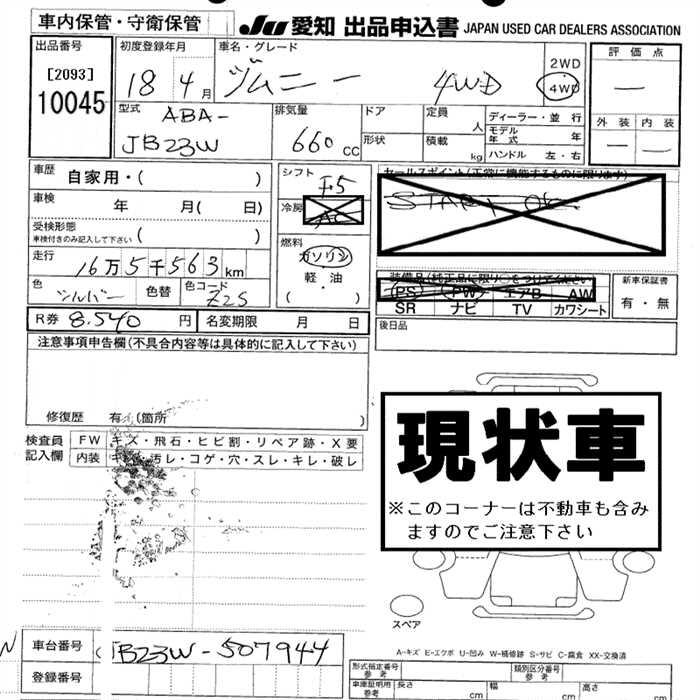 車内保管・守衛保管
JU 愛知 出品申込書 JAPAN USED CAR DEALERS ASSOCIATION
出品番号
[2093]
10045
初度登録年月
18 4月
車名・グレード
ジムニー 4WD
2WD
4WD
評価点
—
外装 内装
— —
型式
ABA-
JB23W
排気量
660 cc
ドア
形状
定員 人
積載 kg
ディーラー・並行
モデル年式 年
ハンドル 左・右
車歴 自家用・( )
車検 年 月( 日)
受検形態
車検付きのみ記入して下さい ( )
走行 16万5千563km
色 シルバー 色替 色コード Z2S
シフト F5
冷房 AC
燃料
ガソリン
軽・油
( )
セールスポイント(正常に機能するものに限ります)
装備品(純正品に限り○をつけてください)
PS PW エアB AW
SR ナビ TV カワシート
新車保証書
有・無
R券 8.540円 名変期限 月 日
後日品
注意事項申告欄(不具合内容等は具体的に記入して下さい)
修復歴 有 (箇所 )
検査員
記入欄
FW キズ・飛石・ヒビ割・リペア跡・X要
内装 キズ・汚レ・コゲ・穴・スレ・キレ・破レ
現状車
※このコーナーは不動車も含み
ますのでご注意下さい
スペア
A-キズ E-エクボ U-凹み W-補修跡 S-サビ C-腐食 XX-交換済
車台番号 JB23W-507944
登録番号
形式指定番号
参考
類別区分番号
参考
車庫証明用
参考
長さ 幅 高さ